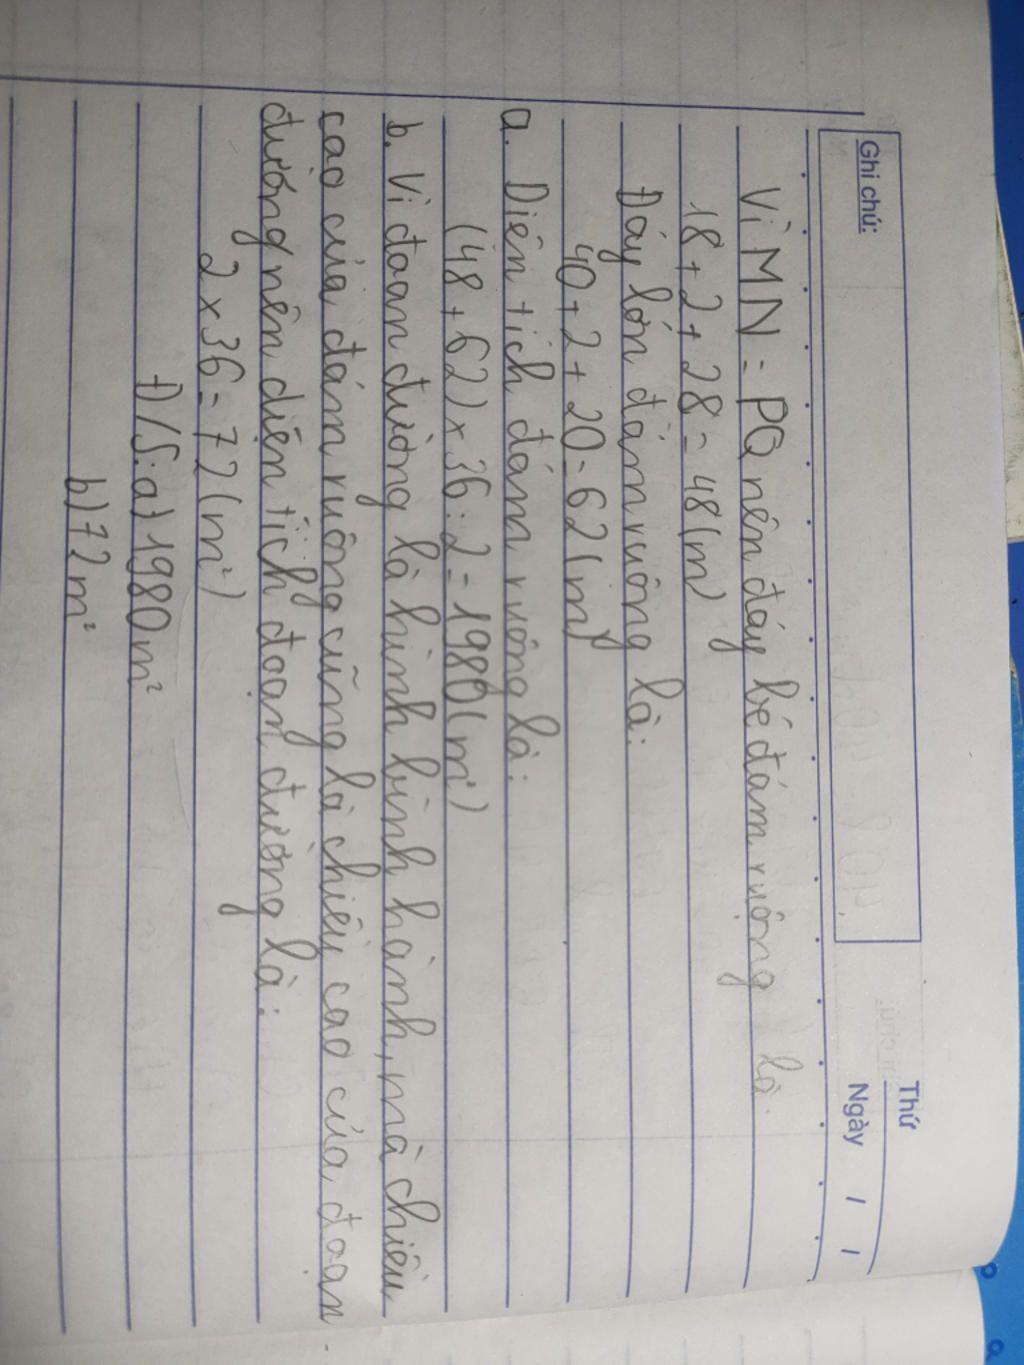 Thứ
Ghi chú:
Ngày / /
Vì MN = PQ nên đáy bé đám ruộng là.
18 + 2 + 28 = 48 (m)
Đáy lớn đám ruông là:
40 + 2 + 20 = 62 (m)
a. Diên tích đám ruông là:
(48 + 62) x 36 : 2 = 1980 (m²)
b. Vì đoan đường là hình bình hành, mà chiều
cao của đám ruông cũng là chiều cao của đoạn
đường nên diện tích đoạn đường là:
2 x 36 = 72 (m²)
Đ/S: a) 1980 m²
b) 72 m²